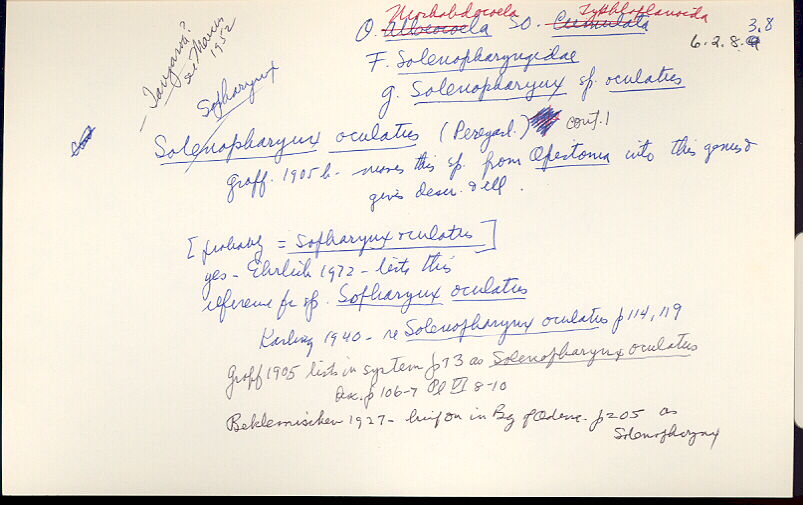 Neorhabdocoela Typhloplanoida
O. Alloeocoela SO. Cumulata 3.8
6.2.8.9
F. Solenopharyngidae
g. Solenopharyux sp. oculatus
- Tanzaria?
see Marcus
1952
Sopharyux
Solenopharyux oculatus (Pereyasl.) cont.!
Graff. 1905 b - moves this sp. from Opistoma into this genus &
gives descr. & ill.
[probably = Sopharyux oculatus]
yes - Ehrlich 1972 - lists this
reference for sp. Sopharyux oculatus
Karling 1940 - re Solenopharyux oculatus p 114, 119
Graff 1905 lists in system p 73 as Solenopharyux oculatus
Desc. p 106-7 Pl VI 8-10
Beklemischev 1927 - brief on in Bay of Odessa. p 205 as
Solenopharynx